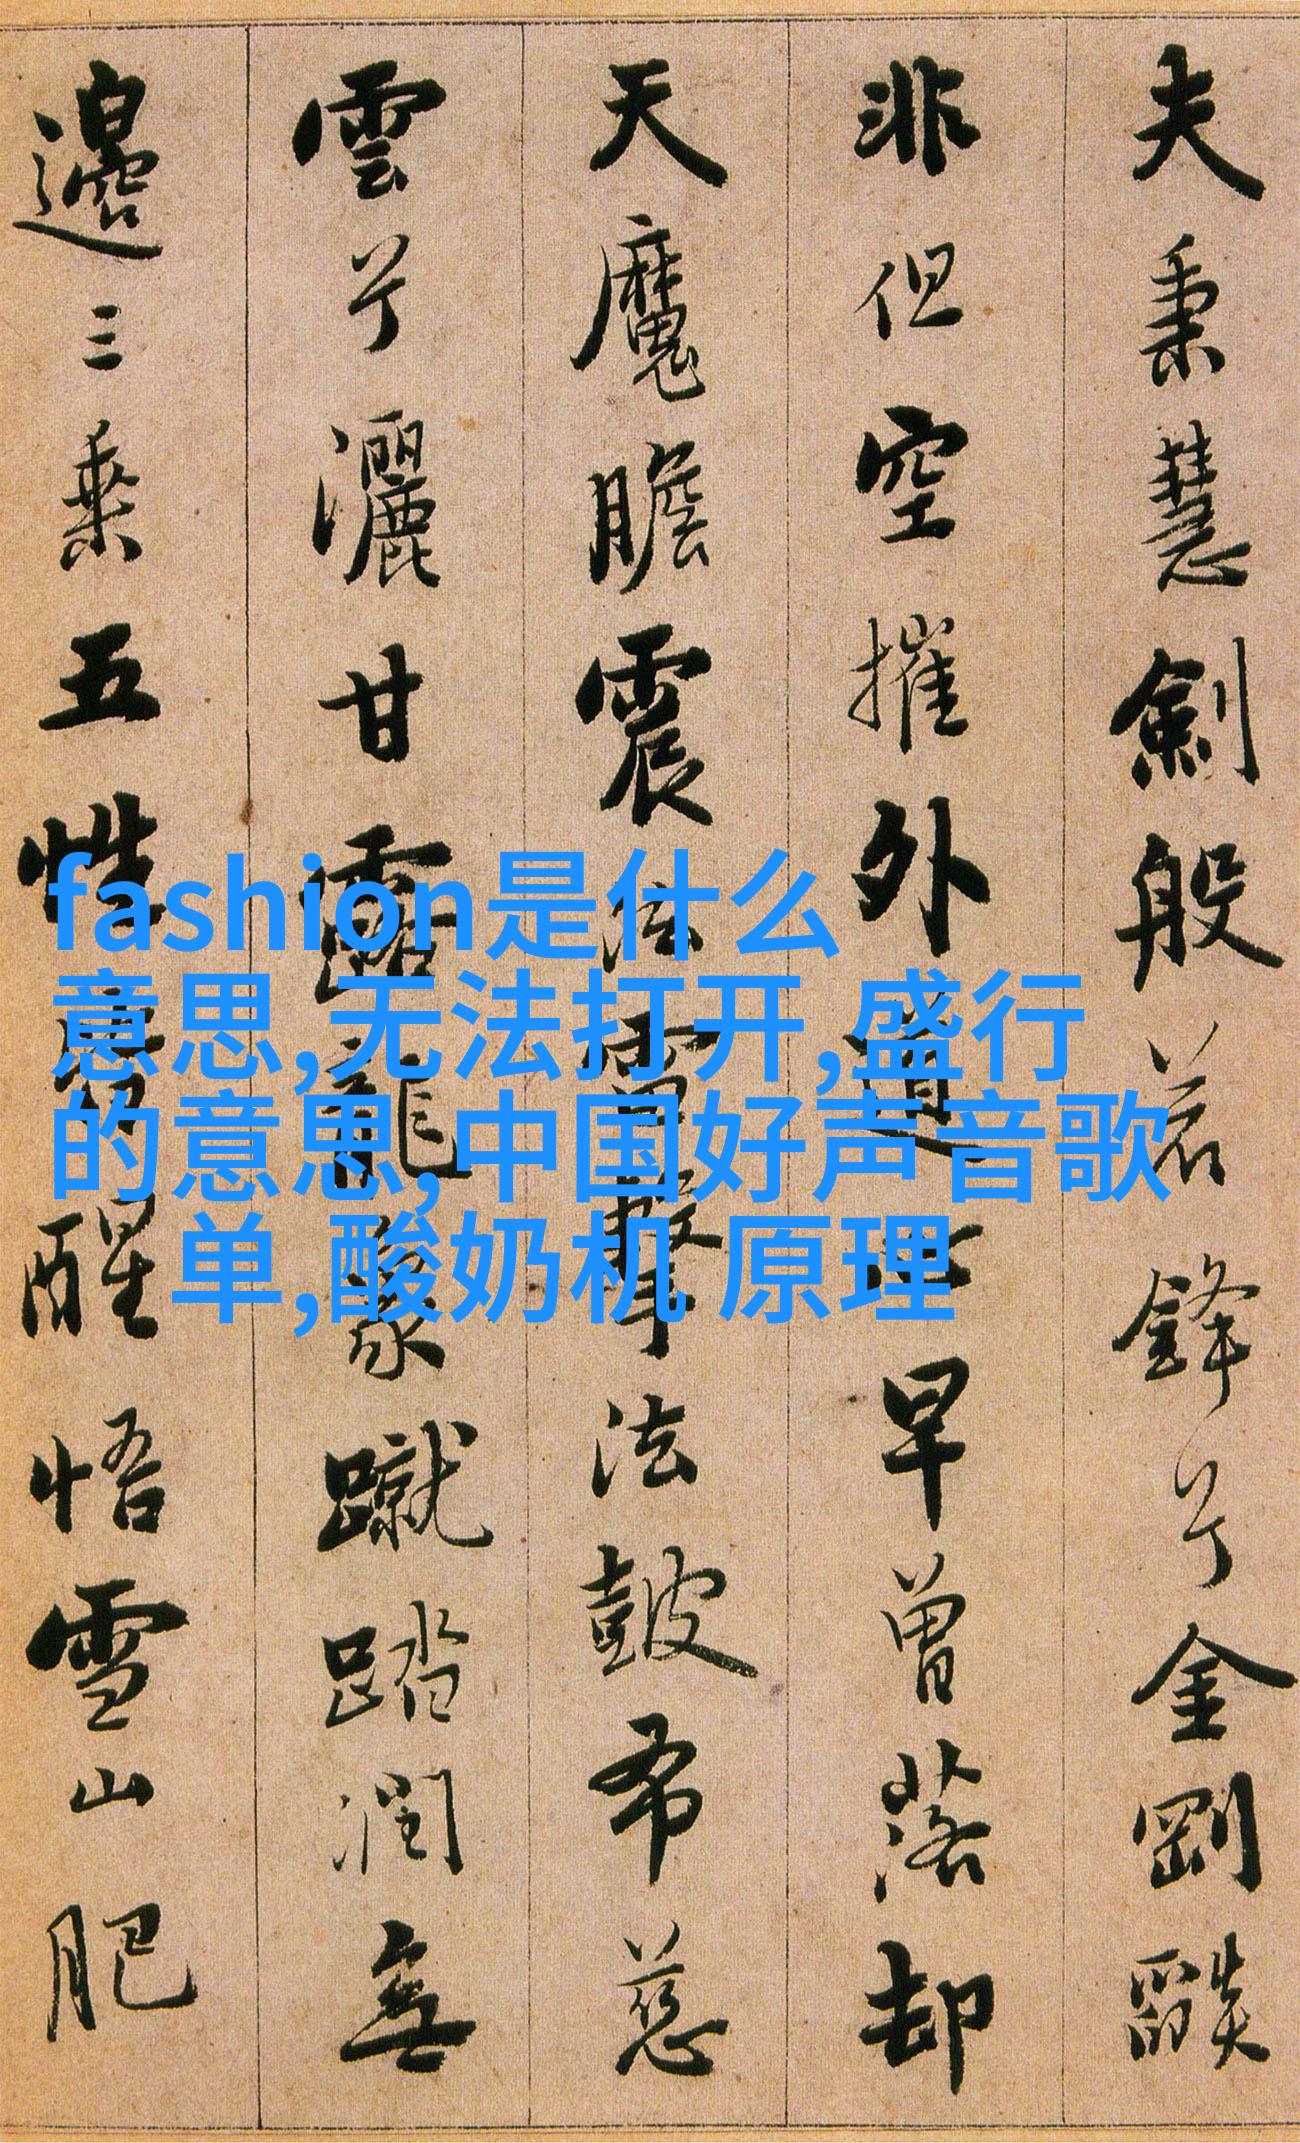 夫秉慧劍般若鋒兮金剛燄
非但空摧外道心早曾落却
天魔膽震法雷擊法鼓布慈
雲兮灑甘露龍象蹴踏潤無
邊三乘五性皆醒悟雪山肥
fashion是什么
意思,无法打开,盛行
的意思,中国好声音歌
单,酸奶机 原理